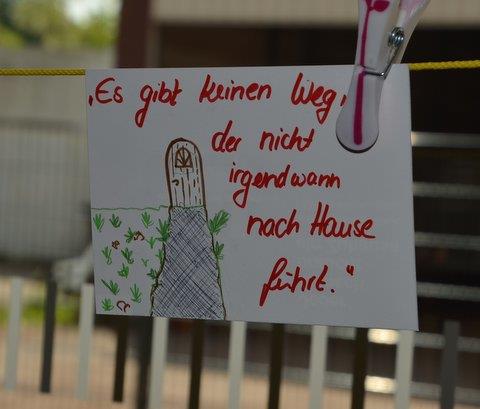 „Es gibt keinen Weg,
der nicht
irgendwann
nach Hause
führt."